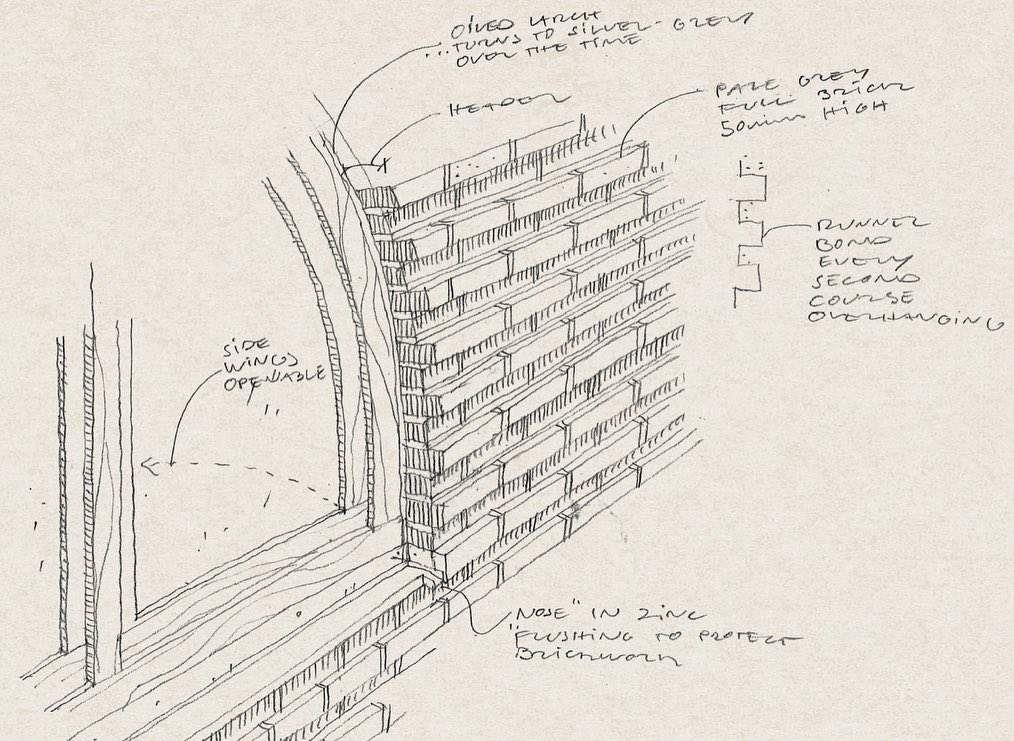 OILED LARCH
...TURNS TO SILVER-GREY
OVER THE TIME
HEADER
PALE GREY
FULL BRICK
50mm HIGH
RUNNER
BOND
EVERY
SECOND
COURSE
OVERHANGING
SIDE
WINGS
OPENABLE
"NOSE" IN ZINC
FLUSHING TO PROTECT
BRICKWORK